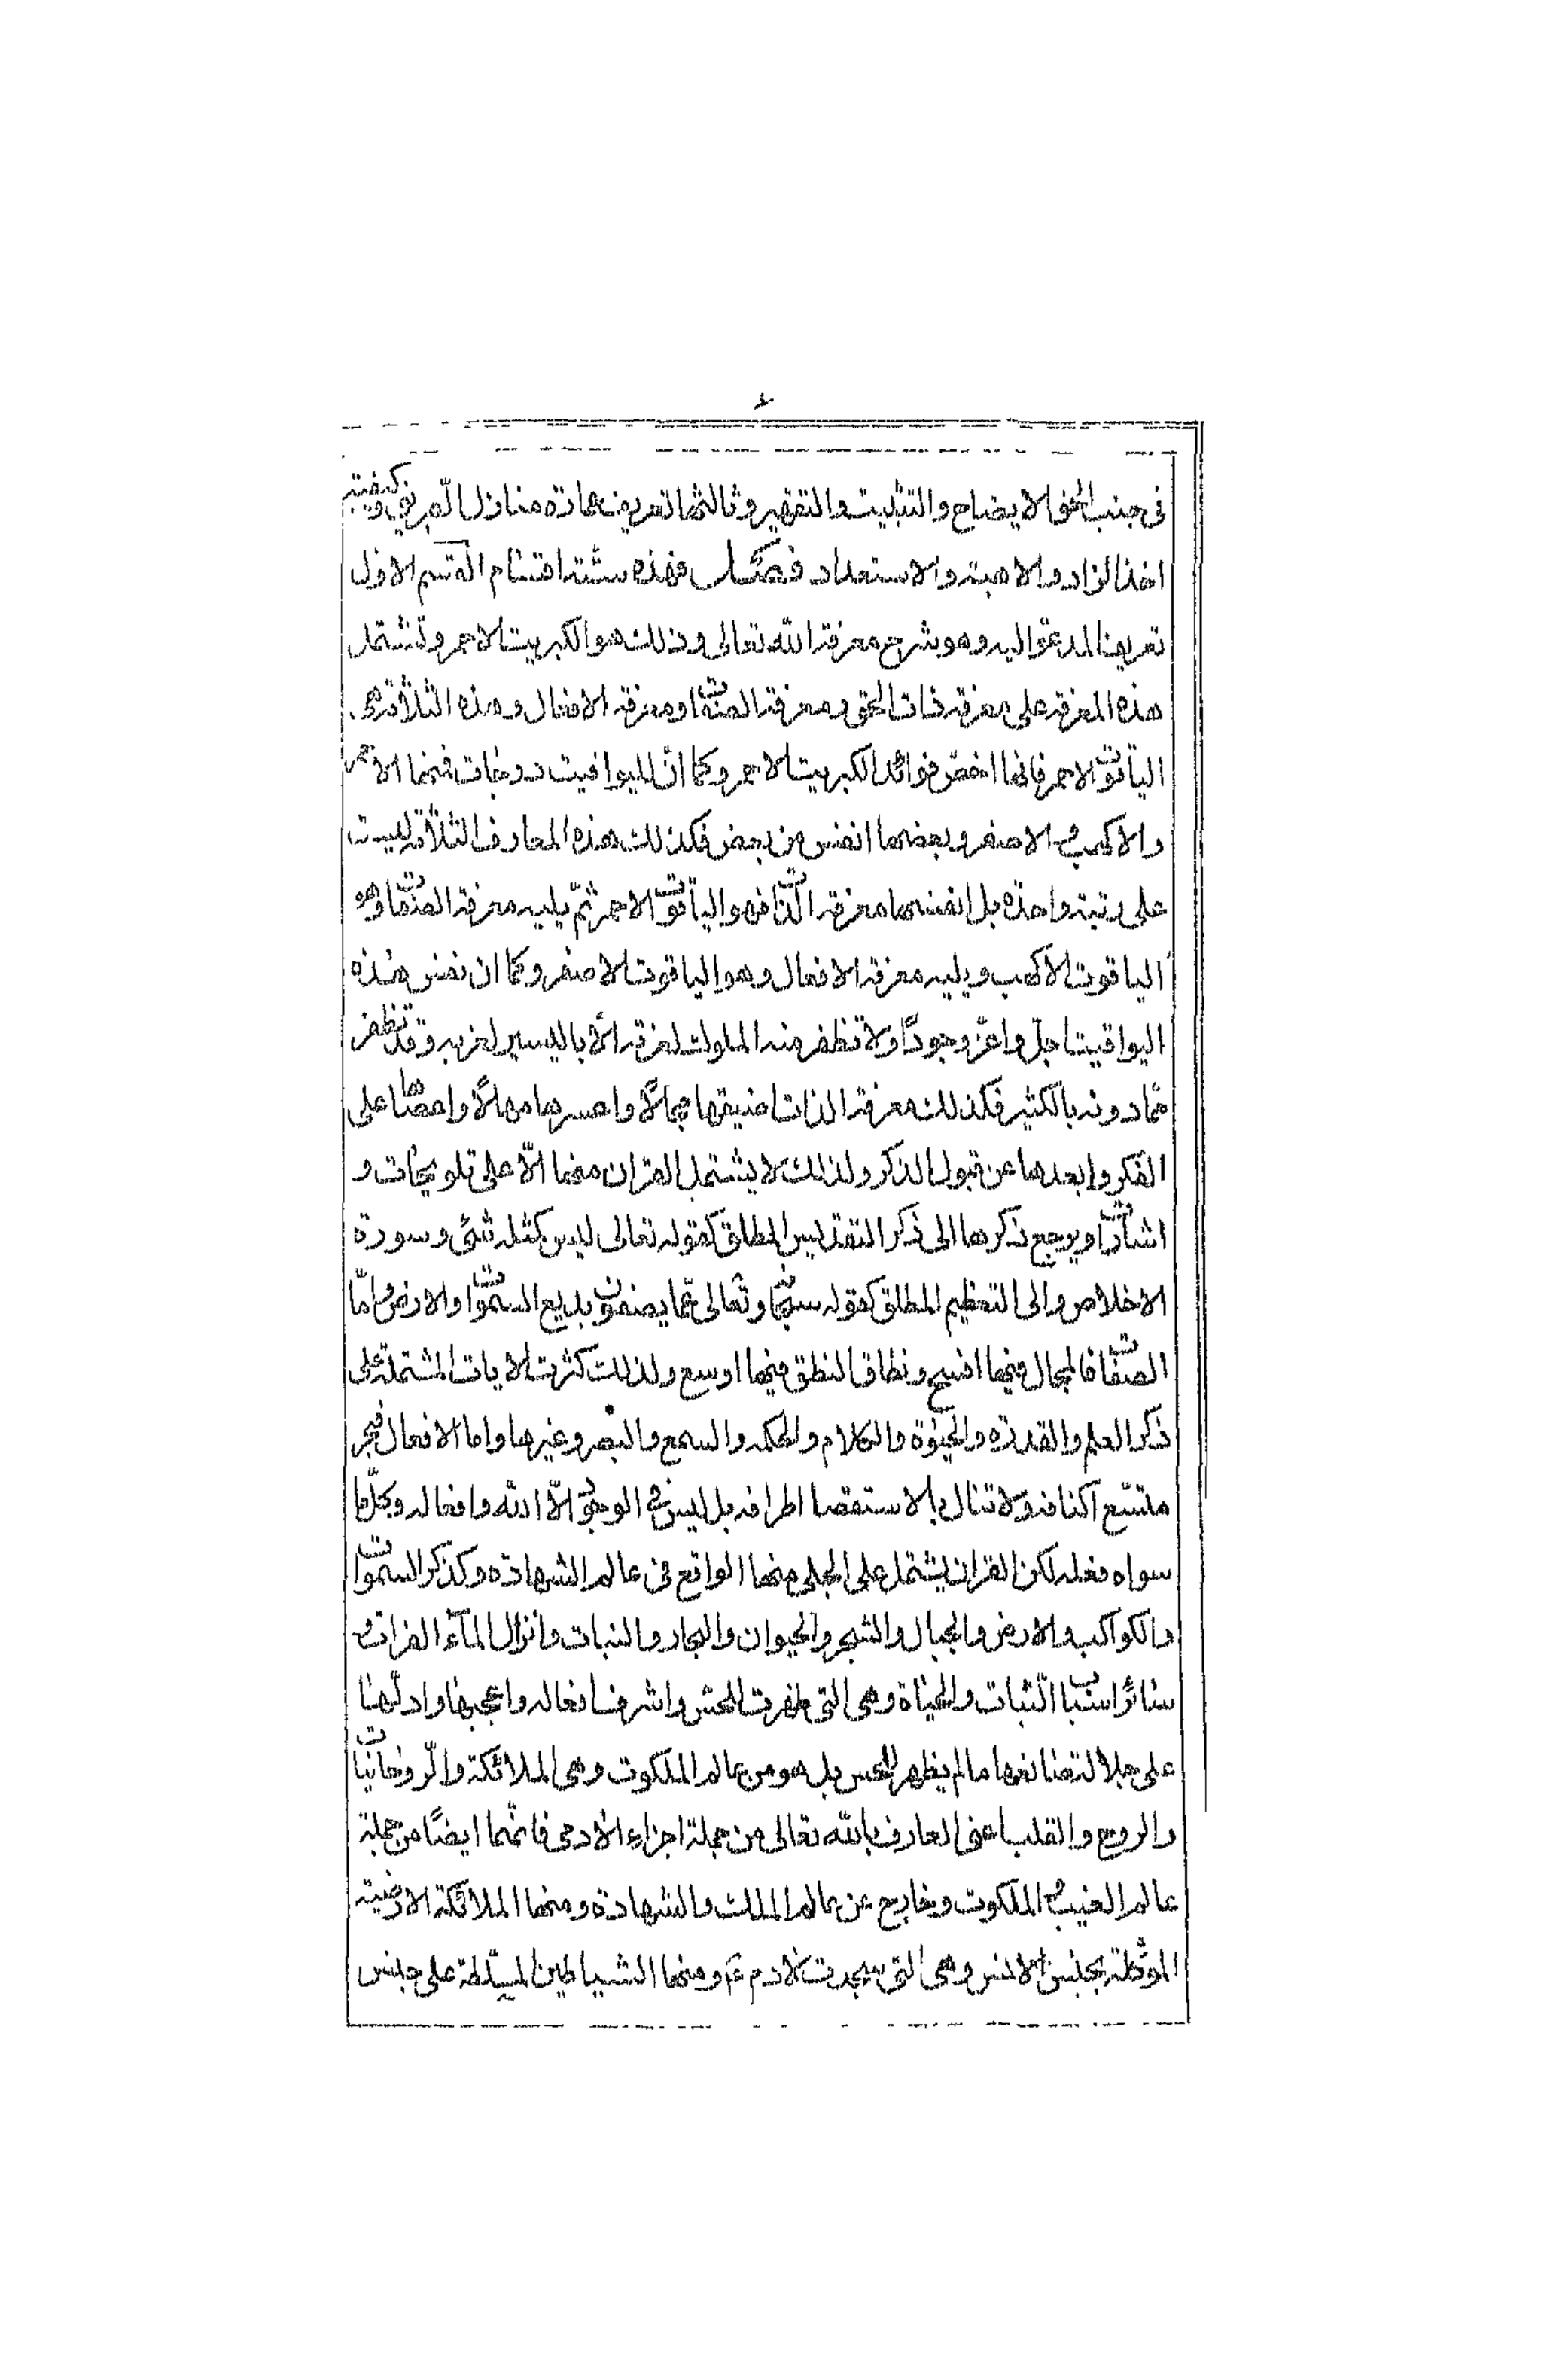 ٤
فى جنب الحق الايضاح والتثبيت والتقهير وثالثها تعريف عمارة منازل الطريق وكيفية
اخذ الزاد والاهبة والاستعداد فصل فهذه ستة اقسام القسم الاول
تعريف المدعو اليه وهو شرح معرفة الله تعالى وذلك هو الكبريت الاحمر وتشتمل
هذه المعرفة على معرفة ذات الحق ومعرفة الصفات ومعرفة الافعال وهذه الثلاثة هى
الياقوت الاحمر فانها اخص فوائد الكبريت الاحمر وكما ان لليواقيت درجات فمنها الاحمر
والاكهب والاصفر وبعضها انفس من بعض فكذلك هذه المعارف الثلاثة ليست
على رتبة واحدة بل انفسها معرفة الذات فهو الياقوت الاحمر ثم يليه معرفة الصفات وهو
الياقوت الاكهب ويليه معرفة الافعال وهو الياقوت الاصفر وكما ان نفس هذه
اليواقيت اجل واعز وجودًا ولا تظفر منه الملوك لعزته الا باليسير لعزته وقد تظفر
مما دونه بالكثير فكذلك معرفة الذات اضيقها مجالًا واعسرها منالًا واعصاها على
الفكر وابعدها عن قبول الذكر ولذلك لا يشتمل القران منها الّا على تلويحات و
اشارات ويرجع ذكرها الى ذكر التقديس المطلق كقوله تعالى ليس كمثله شئ وسورة
الاخلاص والى التعظيم المطلق كقوله سبحانه وتعالى عما يصفون بديع السموات والارض وامّا
الصفات فالمجال فيها افسح ونطاق النطق فيها اوسع ولذلك كثرت الايات المشتملة على
ذكر العلم والقدرة والحيوة والكلام والحكمة والسمع والبصر وغيرها واما الافعال فبحر
متسع اكنافه ولا تنال بالاستقصا اطرافه بل ليس فى الوجود الّا الله وافعاله وكل ما
سواه فعله لكن القران يشتمل على الجلى منها الواقع فى عالم الشهادة وكذكر السموات
والكواكب والارض والجبال والشجر والحيوان والبحار والنبات وانزال الماء الفرات و
سائر اسباب النبات والحياة وهى التى ظهرت للحس واشرف افعاله واعجبها وادلها
على جلالة صانعها ما لم يظهر للحس بل هو من عالم الملكوت وهى الملائكة والروحانيات
والروح والقلب اعنى العارف بالله تعالى من جملة اجزاء الادمى فانهما ايضًا من جملة
عالم الغيب والملكوت وخارج عن عالم الملك والشهادة ومنها الملائكة الارضية
الموكلة بجنس الانس وهى التى سجدت لادم ع م ومنها الشياطين المسلطة على جنس